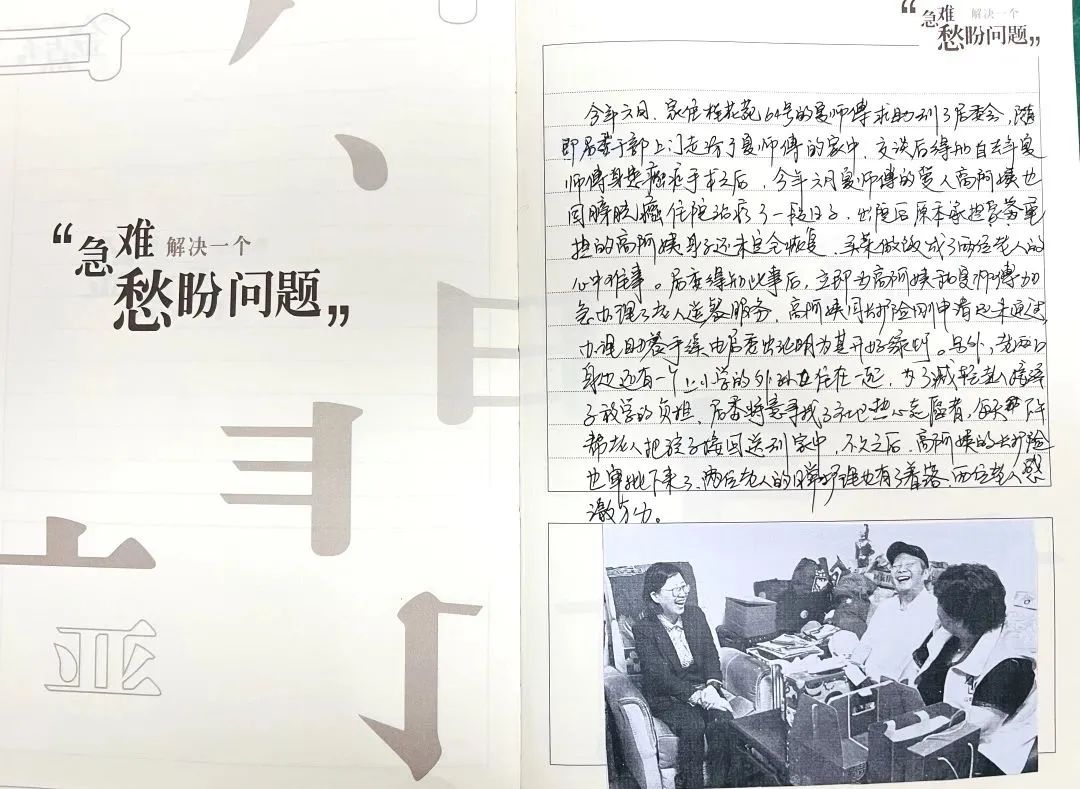 “急难 解决一个
愁盼问题”
“急难 解决一个
愁盼问题”
今年六月，家住桂花苑64号的夏师傅求助到了居委会，随
即居委干部上门走访了夏师傅的家中，交谈后得知自去年夏
师傅身患癌症手术之后，今年六月夏师傅的爱人高阿姨也
因膀胱癌住院治疗了一段日子，出院后原本家
的高阿姨身子还未完全恢复，买菜做饭成了两位老人的
心中难事。居委得知此事后，立即为高阿姨和夏师傅加
急办理了老人送餐服务，高阿姨因长护险刚申请还未通过
办理助餐手续由居委出证明为其开好绿灯。另外，老两口
身边还有一个上小学的外孙女住在一起，为了减轻老人接孩
子放学的负担，居委特意寻找了社区热心志愿者，每天下午
帮老人把孩子接回送到家中，不久之后，高阿姨的长护险
也审批下来了，两位老人的日常护理也有了着落，两位老人感
激万分。